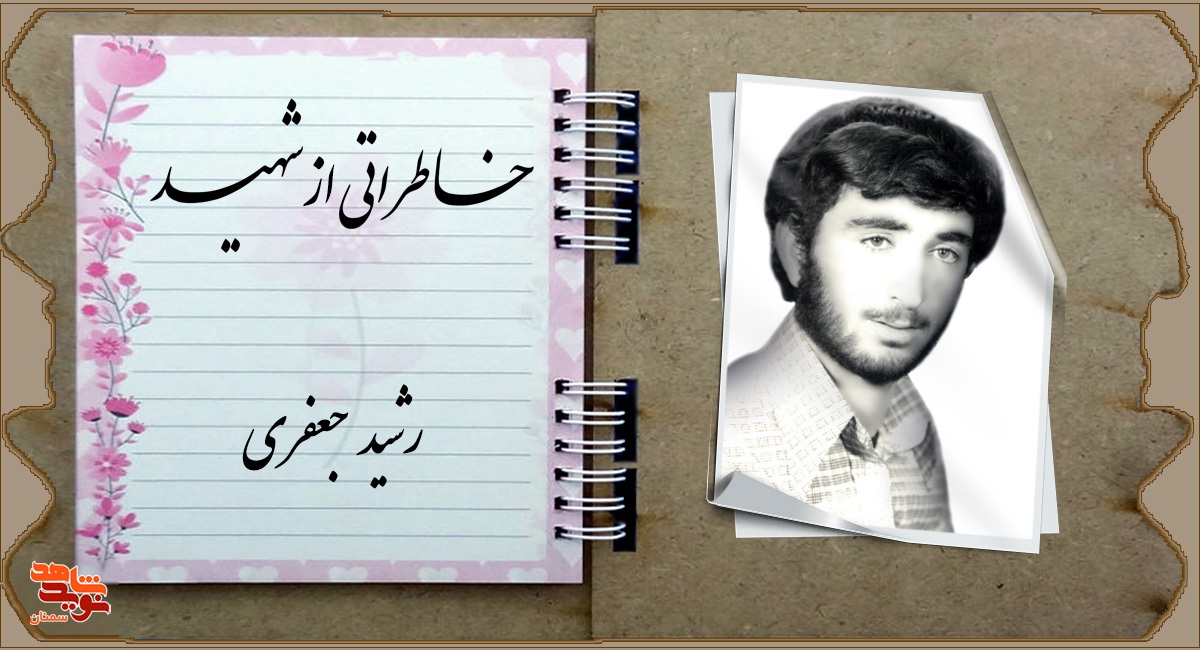 خاطراتی از شهید
رشید جعفری
نوید شاهد
سمنان